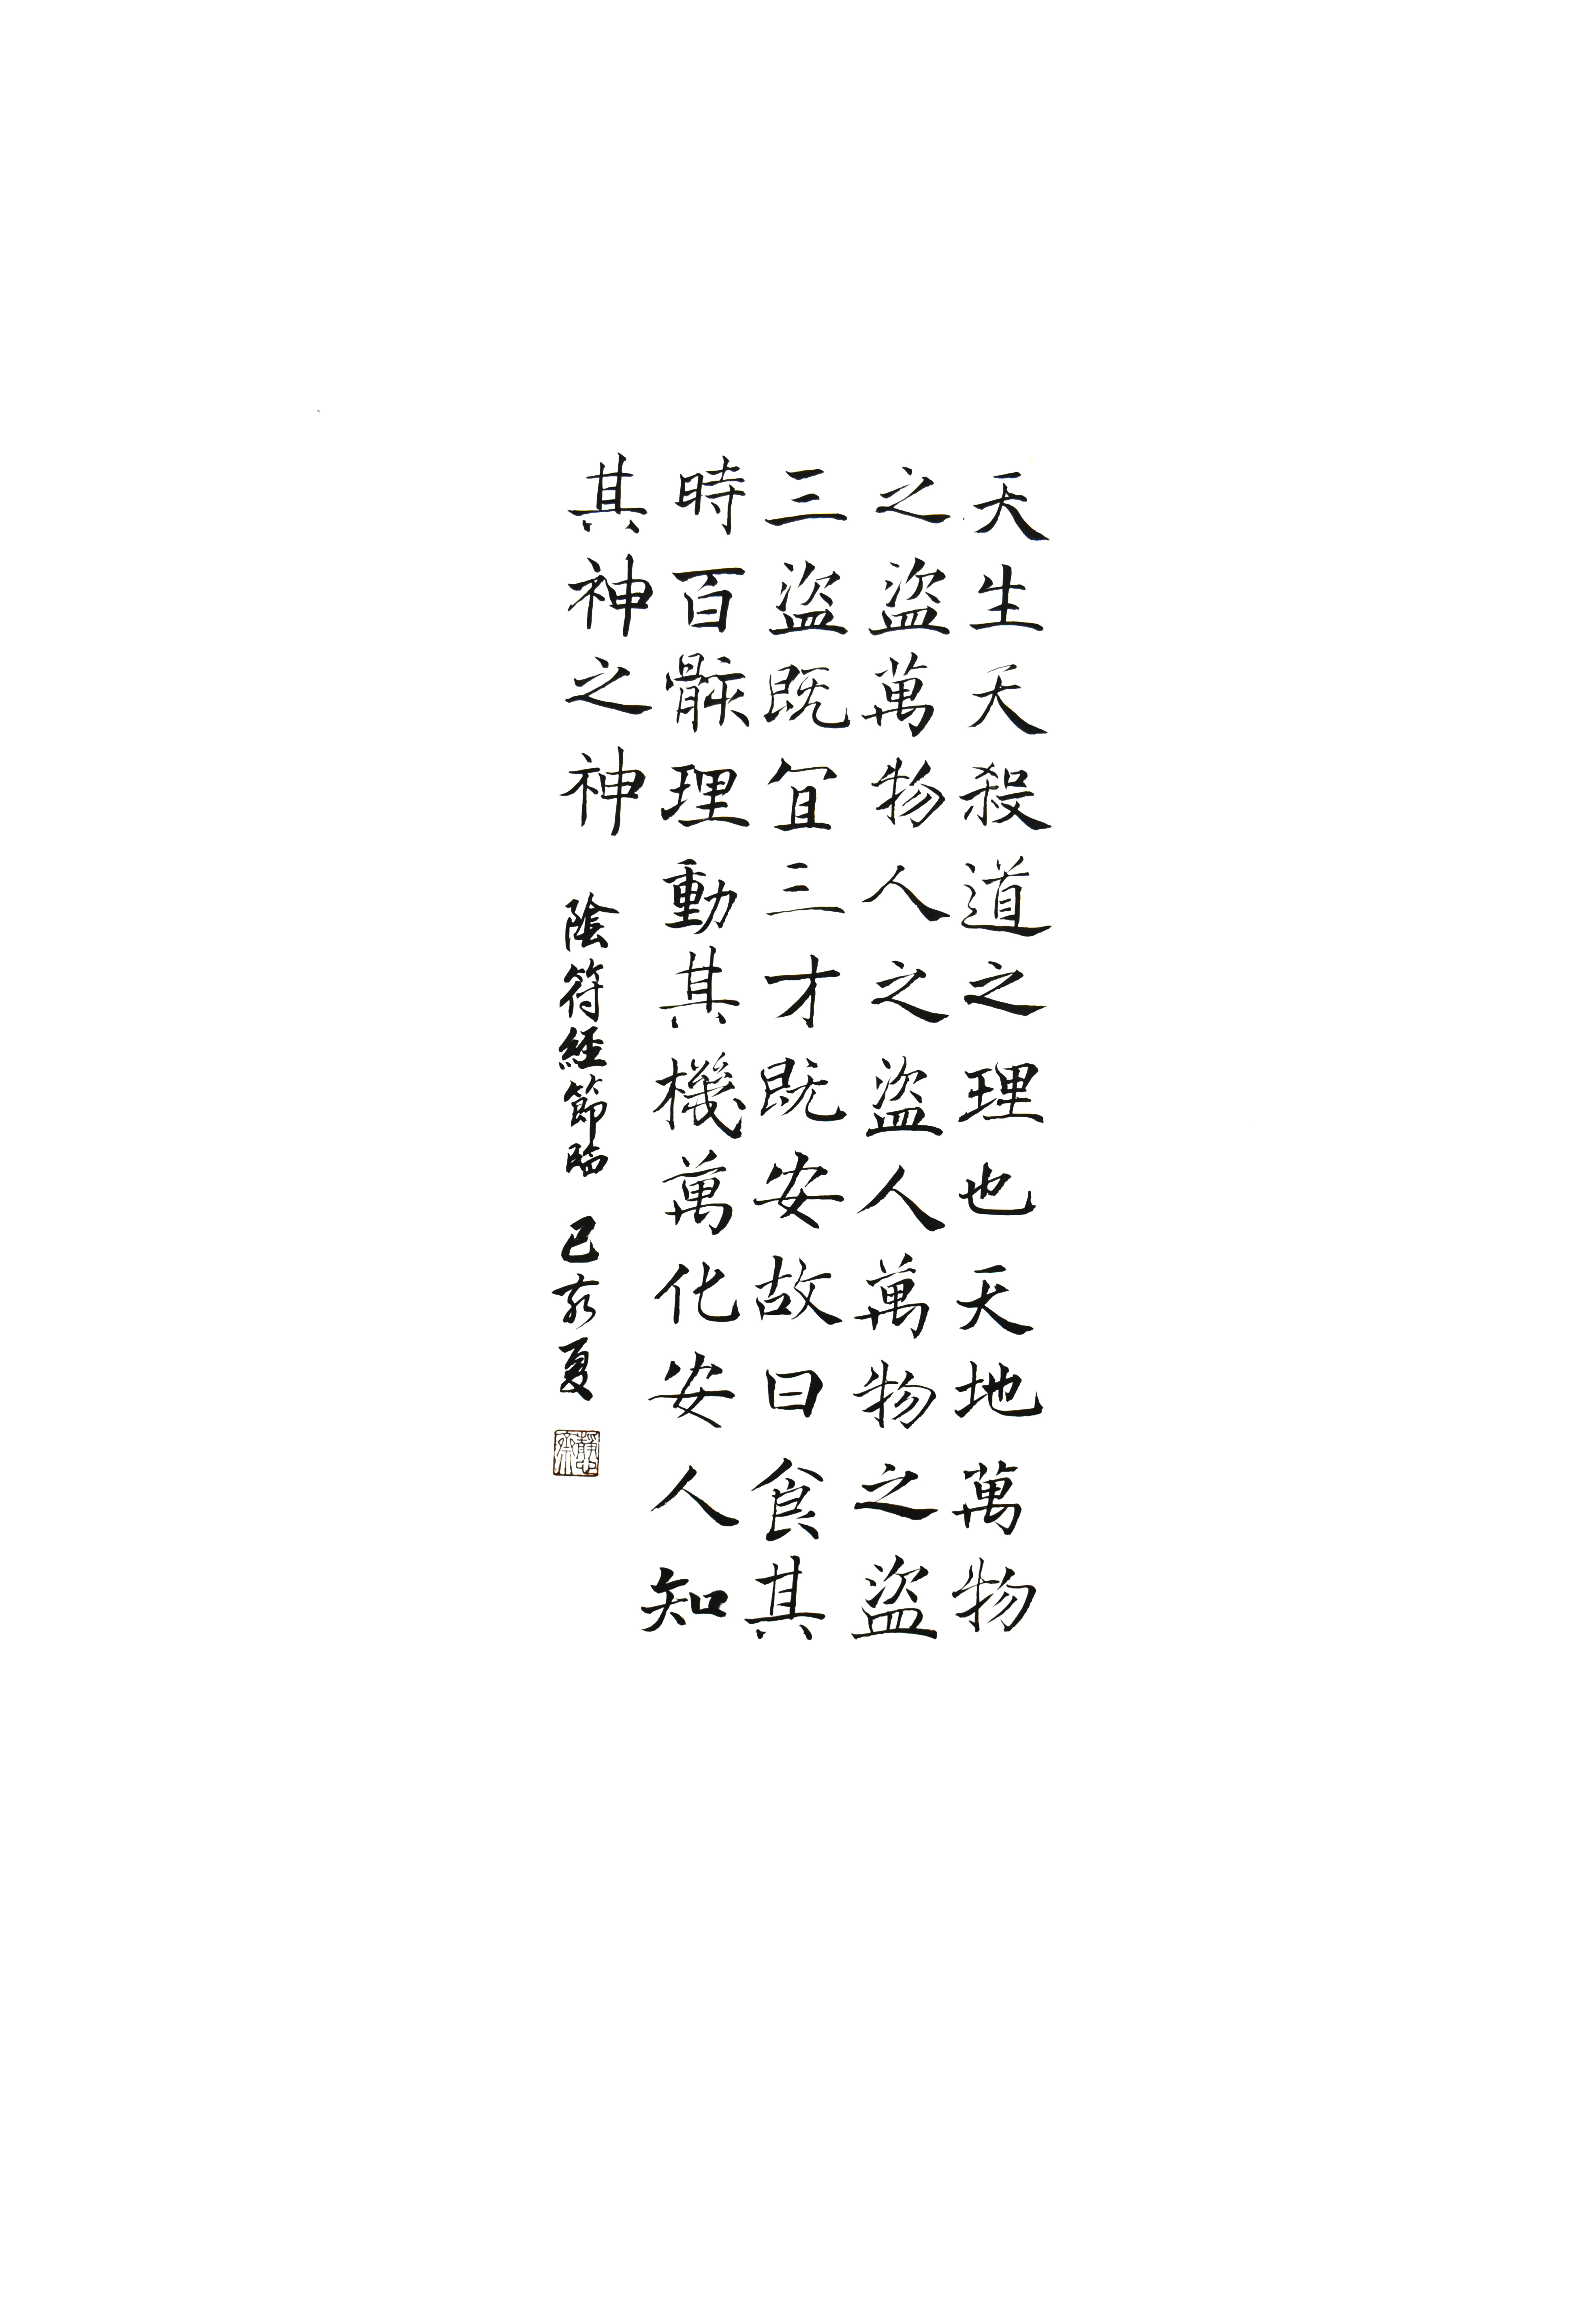 天生天殺道之理也天地萬物
之盜萬物人之盜人萬物之盜
三盜既宜三才既安故曰食其
時百骸理動其機萬化安人知
其神之神
陰符經節臨 己亥夏